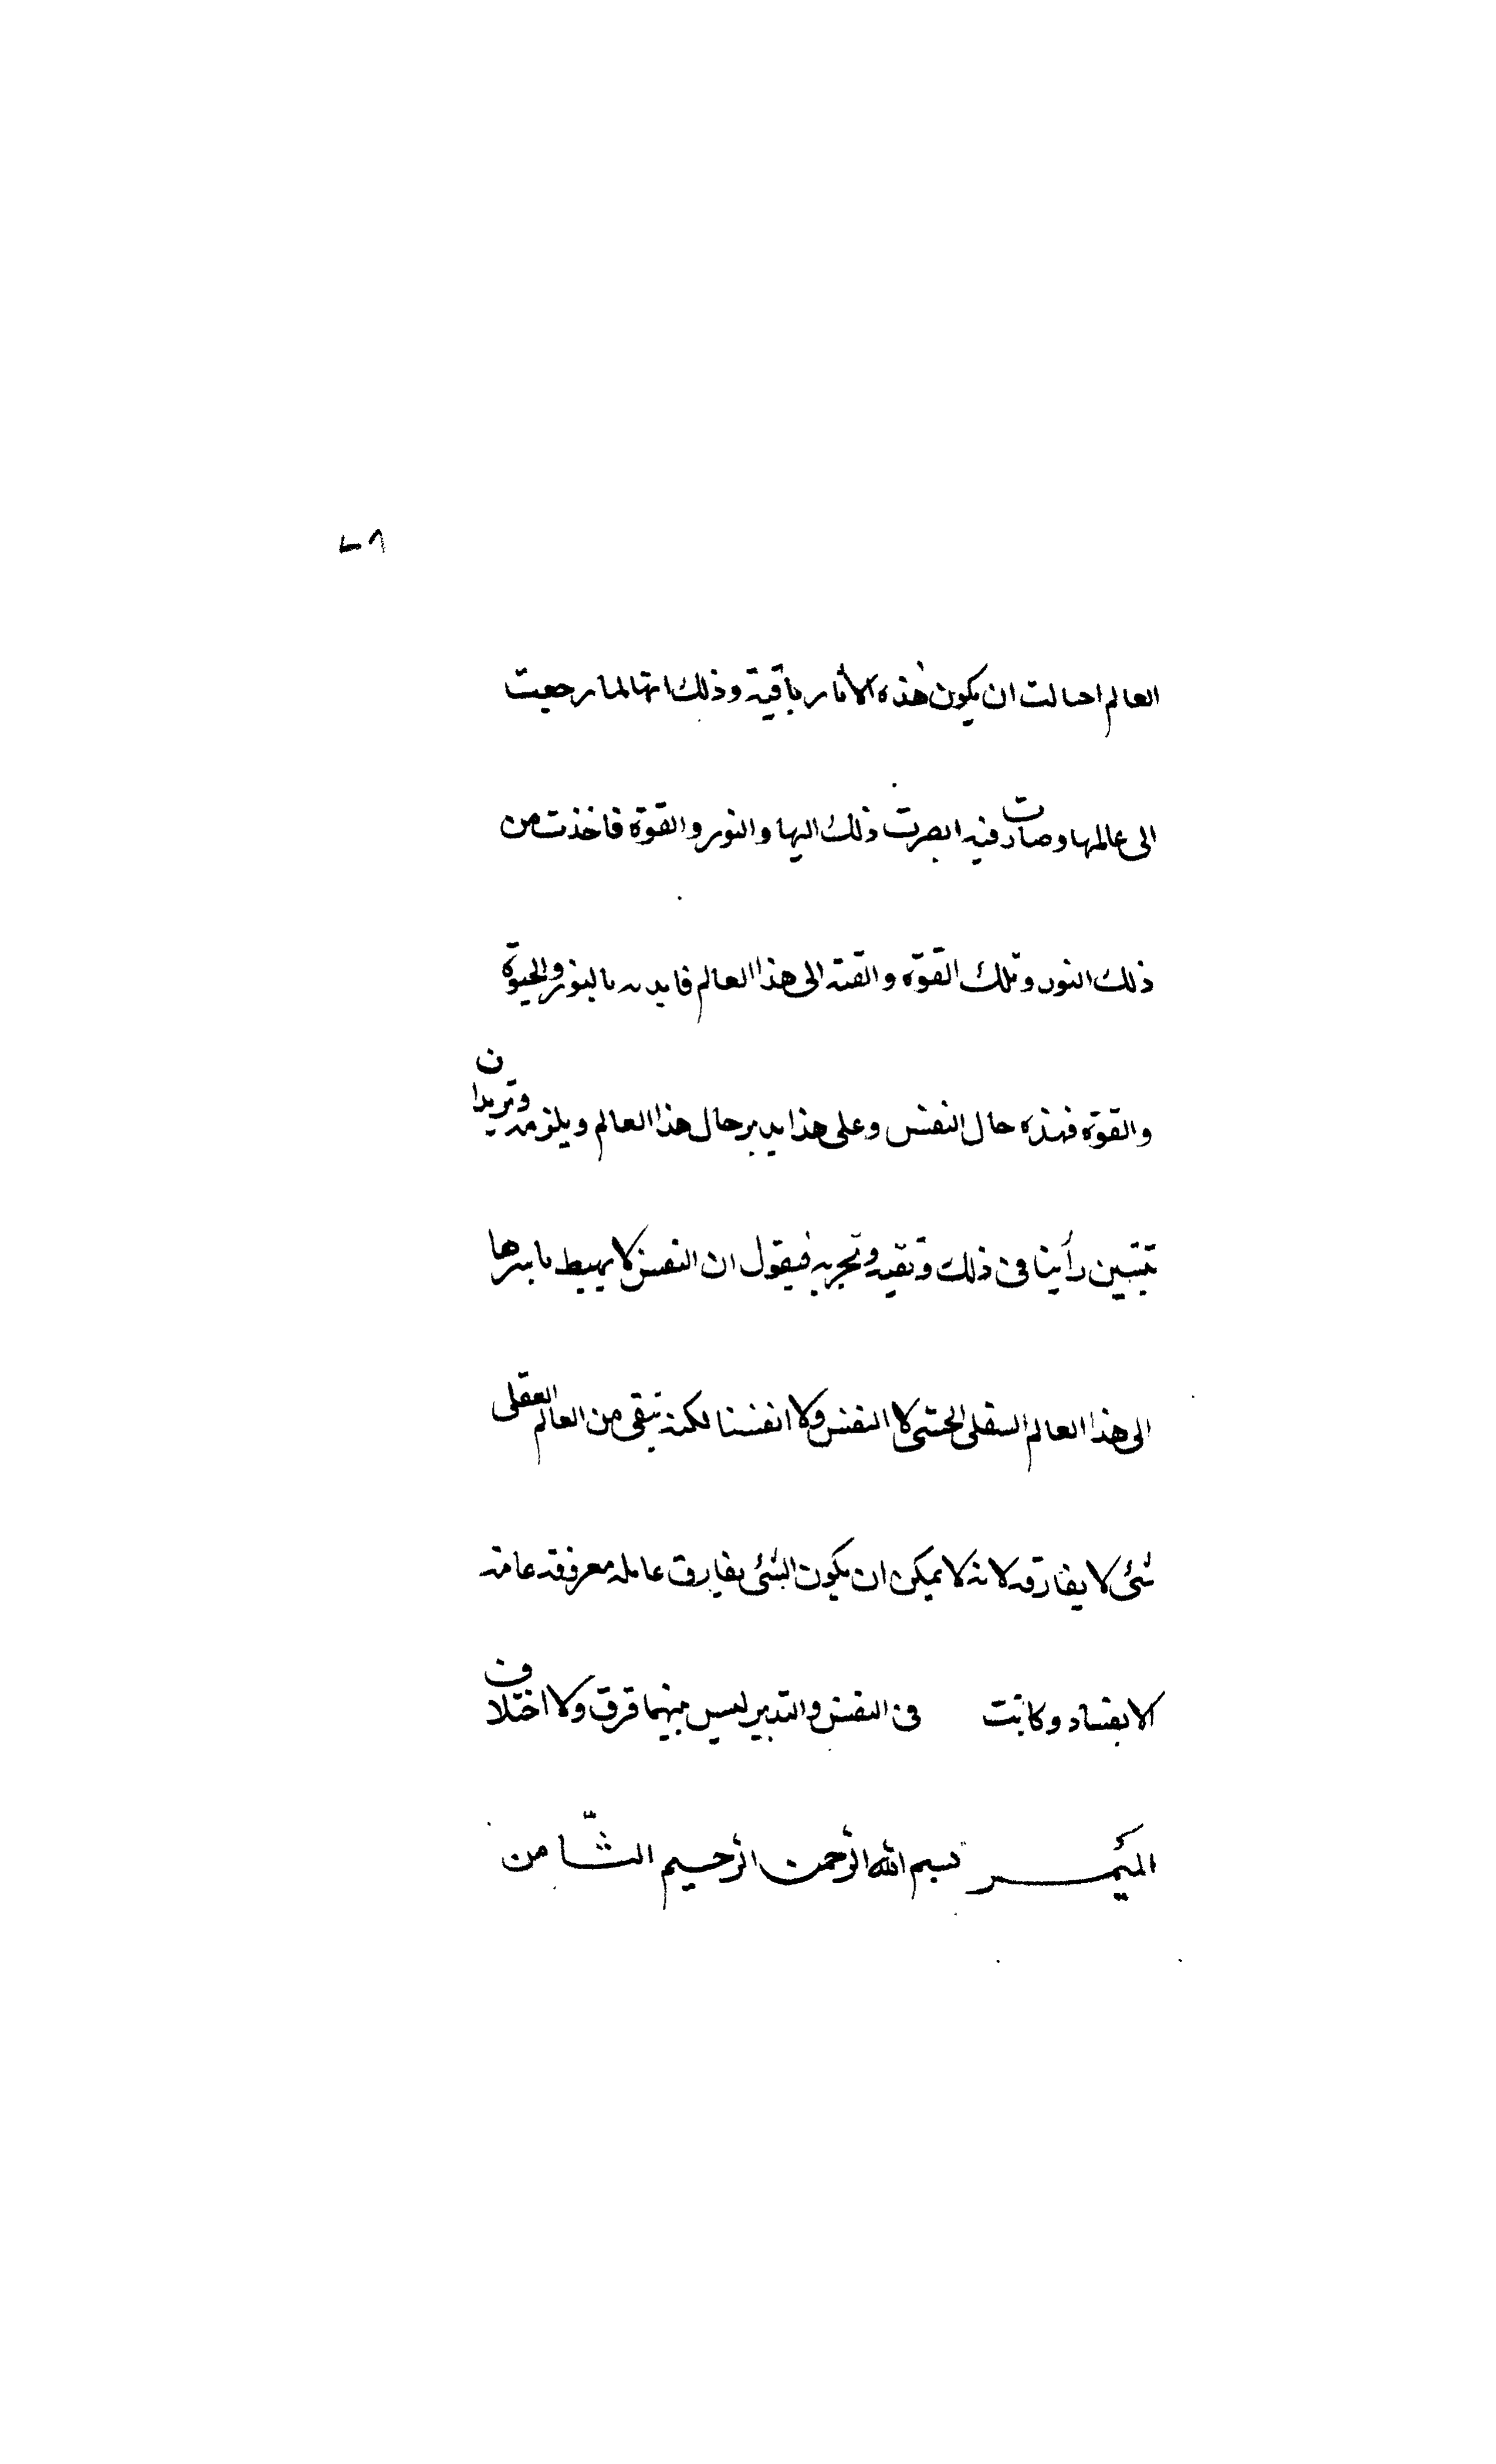 العالم احالت ان يكون هذه الاثار باقية وذلك انها لما رجعت
الى عالمها وصارت فيه ابصرت ذلك البها والنور والقوة فاخذت من
ذلك النور وتلك القوة والقته الى هذا العالم فايدته بالنور والحيوة
والقوة فهذه حال النفس وعلى هذا يدبر حال هذا العالم ويلزمه ونريد ان
نتبين رأينا فى ذلك ونجريه فيقول ان النفس لا يهبط باسرها
الى هذا العالم السفلى الحسى لا النفس ولا انفسنا لكنه تبقى من العالم العقلى
شئ لا يفارقه لانه لا يمكن ان يكون الشئ يفارق عامله
الا بفساد وكانت فى النفس والتدبير ليس بينهما فرق ولا اختلاف
الميمر بسم الله الرحمن الرحيم الثامن